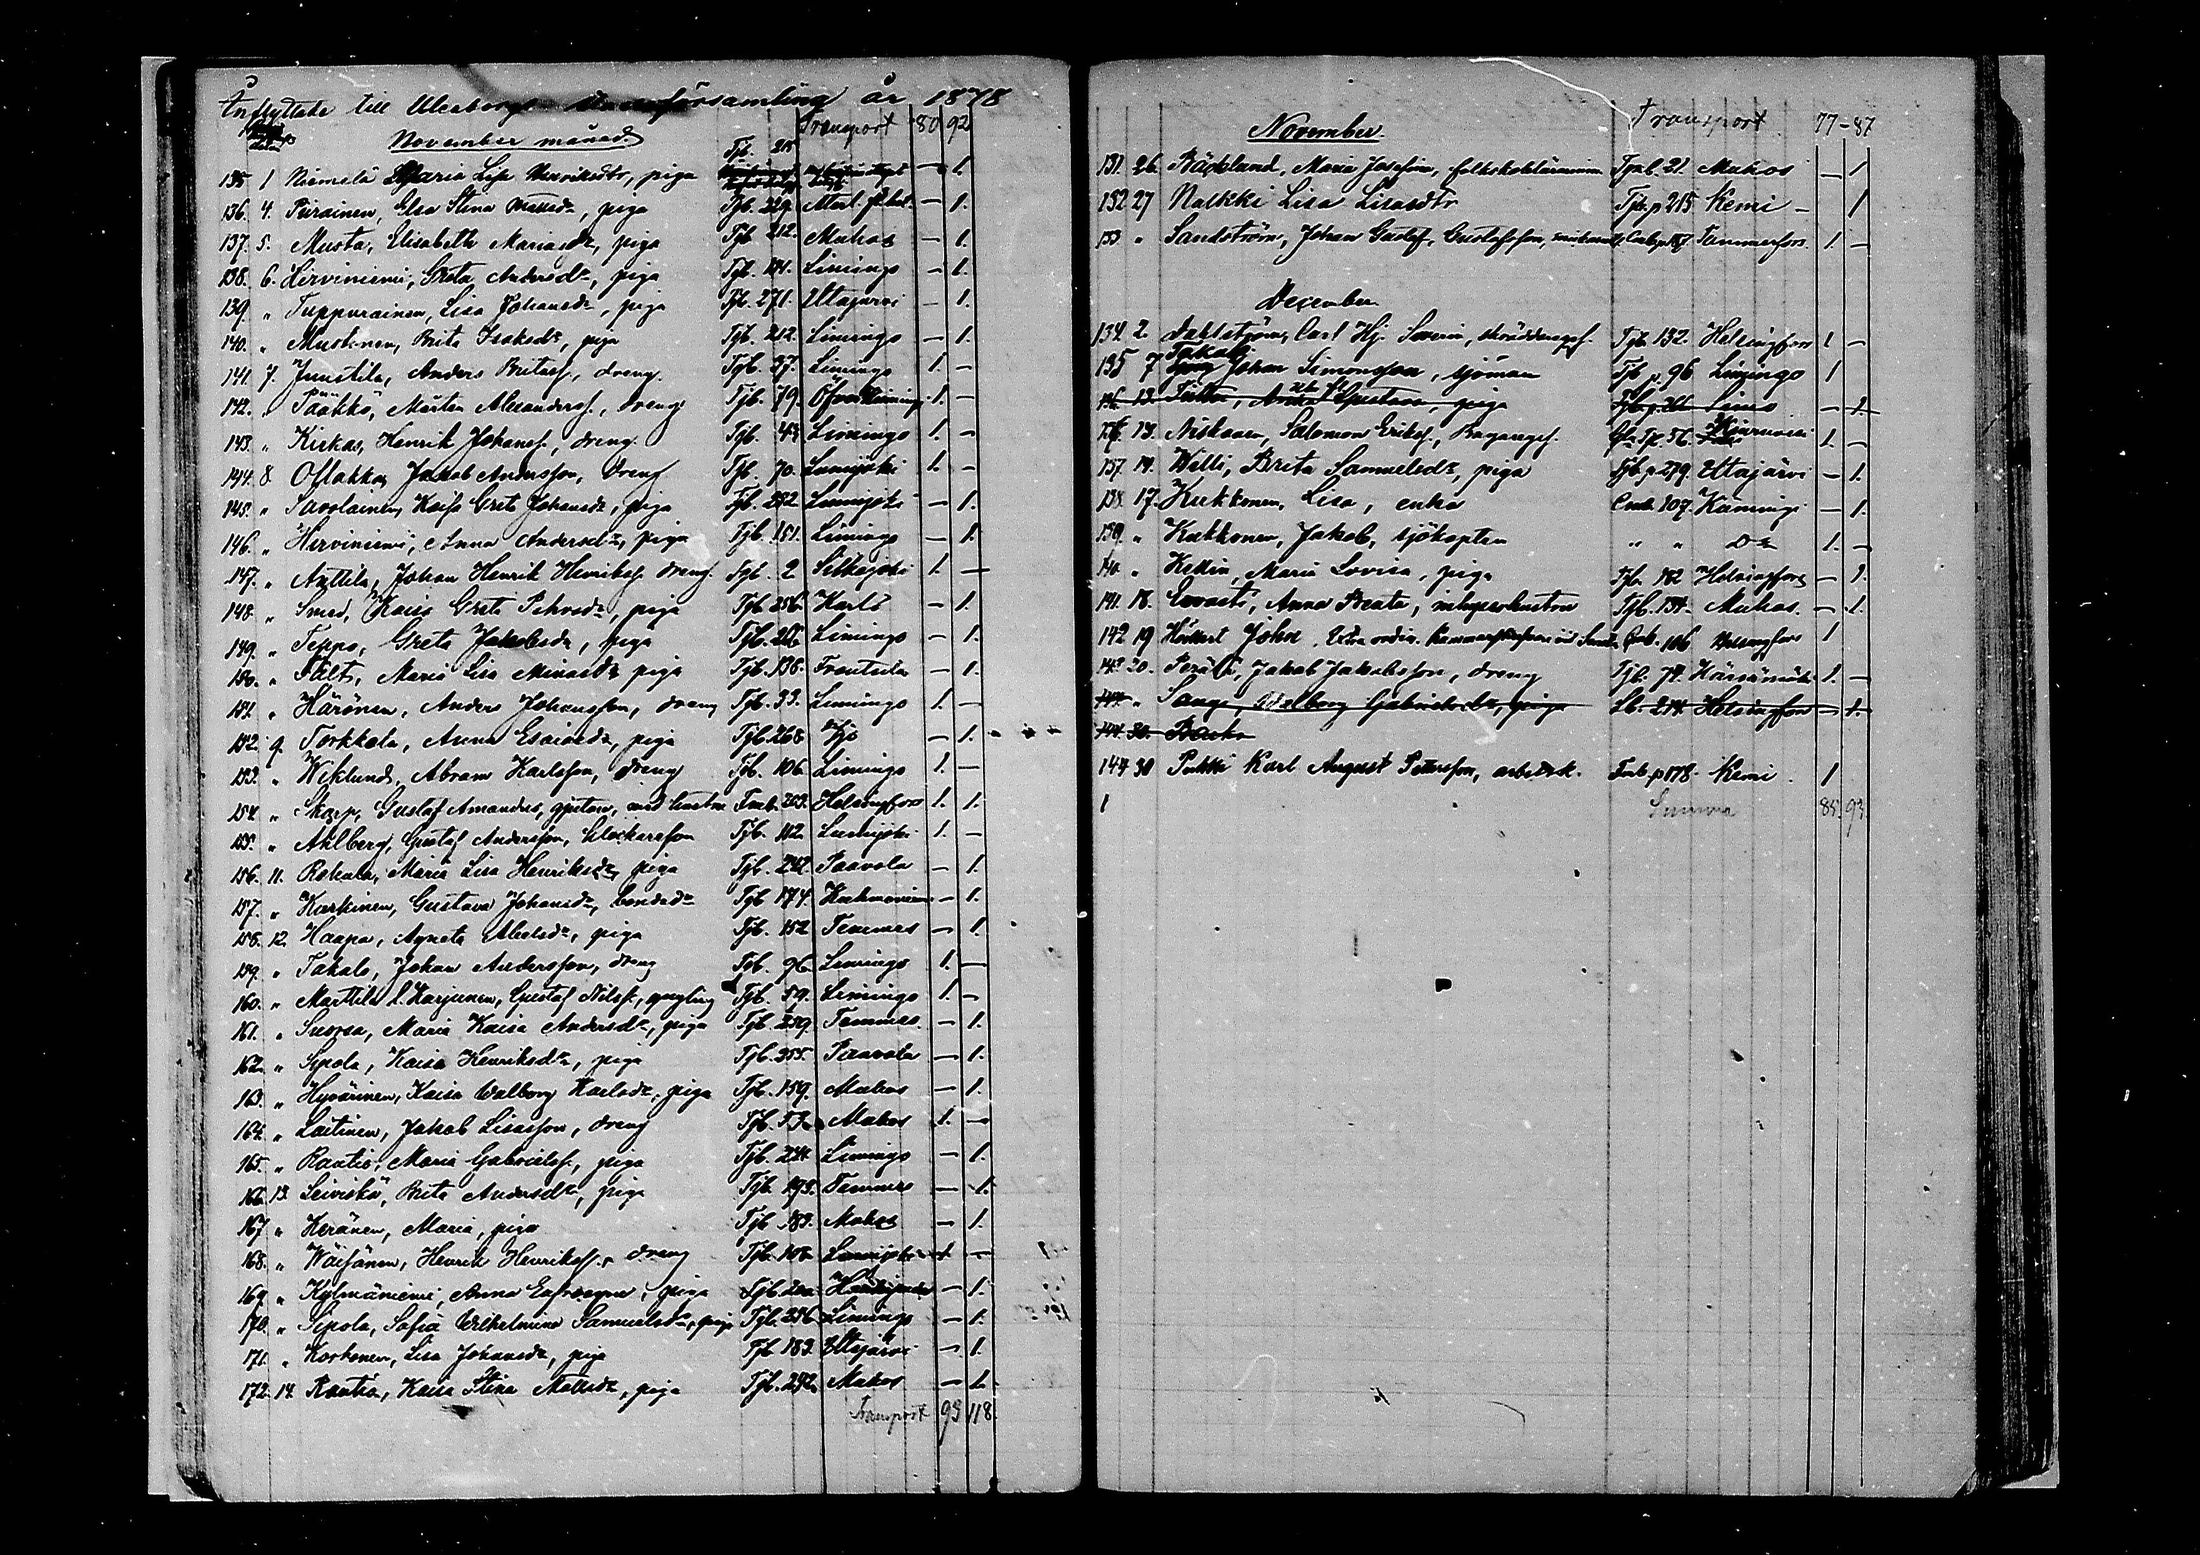 Inflyttade till Uleåborgs församling år 1878
November månad Transport 80 92
135 1 Niemelä Maria Lisa Henriksdtr, piga Tjb. 215 — 1.
136. 4. Piirainen, Elsa Stina Mattsdr, piga Tjb. 229. — 1.
137. 5. Musta, Elisabeth Mariasdr, piga Tjb. 212. Muhos — 1.
138. 6. Hirviniemi, Greta Andersdr, piga Tjb. 151. Limingo — 1.
139. „ Tuppurainen, Lisa Johansdr, piga Tjb. 271. Uttajärvi — 1.
140. „ Mustonen, Brita Isaksdr, piga Tjb. 212. Limingo — 1.
141. 7. Junttila, Anders Britass., dreng. Tjb. 37. Limingo 1. —
142. „ Pääkkö, Mårten Alexanderss., dreng Tjb. 79. Öfverkiiming 1. —
143. „ Kirkas, Henrik Johanss., dreng. Tjb. 43 Limingo 1. —
144. 8. Ollakka, Jakob Andersson, dreng Tjb. 70. Lumijoki 1. —
145. „ Savolainen, Kaisa Greta Johansdr, piga Tjb. 252 Lumijoki — 1.
146. „ Hirviniemi, Anna Andersdr, piga Tjb. 151. Limingo — 1.
147. „ Anttila, Johan Henrik Henrikss. dreng. Tjb. 2 Siikajoki 1. —
148. „ Smed, Kaisa Greta Pehrsdr, piga Tjb. 256. Karlö — 1.
149. „ Teppo, Greta Jakobsdr, piga Tjb. 265 Limingo — 1.
150. „ Fält, Maria Lisa Minasdr piga Tjb. 136. Frantsila — 1.
151. „ Härönen, Anders Johansson, dreng Tjb. 33. Limingo 1. —
152. 9. Torkkola, Anna Esaiasdr, piga Tjb. 268 Ijo — 1.
153. „ Wiklund, Abram Karlsson, dreng Tjb. 106. Limingo 1. —
154. „ Skarp, Gustaf Amandus, gjutare, med hustru Tmb. 203. Helsingfors 1. 1.
155. „ Ahlberg, Gustaf Andersson, klockaresson Tjb. 112. Lumijoki 1. —
156. 11. Rehula, Maria Lisa Henriksdr, piga Tjb. 242. Paavola — 1.
157. „ Karkinen, Gustava Johansdr, bondedr Tjb 174. — 1.
158. 12. Haapa, Agneta Abelsdr, piga Tjb. 152 Temmes — 1.
159. „ Takalo, Johan Andersson, dreng Tjb. 96. Limingo 1. —
160. „ Marttila l. Karjunen, Gustaf Nilss., yngling Tjb. 59. Limingo 1. —
161. „ Suorsa, Maria Kaisa Andersdr, piga Tjb. 259. Temmes. — 1.
162. „ Sipola, Kaisa Henriksdr, piga Tjb. 255. Paavola — 1.
163. „ Hyvärinen, Kaisa Walborg Karlsdr, piga Tjb. 159. Muhos — 1.
164. „ Laitinen, Jakob Lisasson, dreng Tjb. 53. Muhos 1. —
165. „ Rautio, Maria Gabrielss., piga Tjb. 234 Limingo — 1.
166. 13. Leiviskä, Brita Andersdr, piga Tjb. 193. Temmes — 1.
167. „ Keränen, Maria, piga Tjb. 183. Muhos — 1.
168. „ Wäisänen, Henrik Henrikss., dreng Tjb. 108 Lumijoki 1. —
169. „ Kylmäniemi, Anna Eufrosyne, piga Tjb. — 1.
170. „ Sipola, Sofia Wilhelmina Samuelsdr, piga Tjb. 256 Limingo — 1.
171. „ Korkonen, Lisa Johansdr, piga Tjb. 183. Uttajärvi — 1.
172. 14. Rautio, Kaisa Stina Mattsdr, piga Tjb. 232. Muhos — 1.
Transport 93 118.
November. Transport 77 - 87
131. 26. Bäcklund, Maria Josefina, folkskolelärarinna Tjnb. 21. Muhos — 1
132 27 Nalkki Lisa Lisasdtr Tjb. p 215 Kemi — 1
133 „ Sandström, Johan Gustaf, Gustafsson, Tammerfors. 1. —
December
134 2. Dahlström, Carl Hj. Severin, skräddareges. Tjb. 132. Helsingfors 1 —
135 7 Takalo Johan Simonsson, sjöman Tjb p. 96 Limingo 1
136. 13. Gustava, piga — 1.
136. 13. Niskanen, Salomon Erikss., Bagareges. 56. 1. —
137. 14. Welli, Brita Samuelsdr, piga Tjb. p. 279. Uttajärvi — 1.
138. 17. Kukkonen, Lisa, enka Cmb. 107. — 1.
139. „ Kukkonen, Jakob, sjökapten „ „ Do 1. —
140. „ Kellin, Maria Lovisa, piga Tjb. 182 Helsingfors — 1.
141. 18. Anna Beata, inhyseshustru Tjb. 134. Muhos. — 1.
142 19 John, Extra ordin. 106 Helsingfors 1
143 20. Perälä, Jakob Jakobsson, dreng Tjb. 74. Kärsämäki 1. —
144. „ Sauga, Walborg Gabrielsdr, piga Lb. 214. Helsingfors — 1.
144 30.
144 30 Pukki Karl August Pettersson, arbetsk. Tmb. p 178. Kemi 1
1 Summa 85. 93.